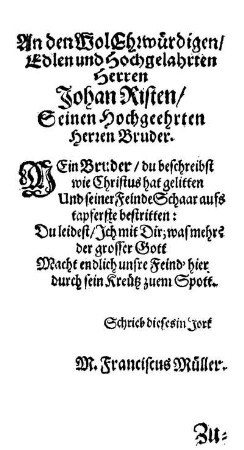 An den WolEhrwürdigen/
Edlen und Hochgelahrten
Herren
Johan Risten/
Seinen Hochgeehrten
Herren Bruder.
MEin Bruder/ du beschreibst
wie Christus hat gelitten
Und seiner Feinde Schaar aufs
tapferste bestritten:
Du leidest/ Ich mit Dir; was mehr?
der grosser Gott
Macht endlich unsre Feind' hier
durch sein Kreütz zuem Spott.
Schrieb dieses in Jork
M. Franciscus Müller.
Zu-